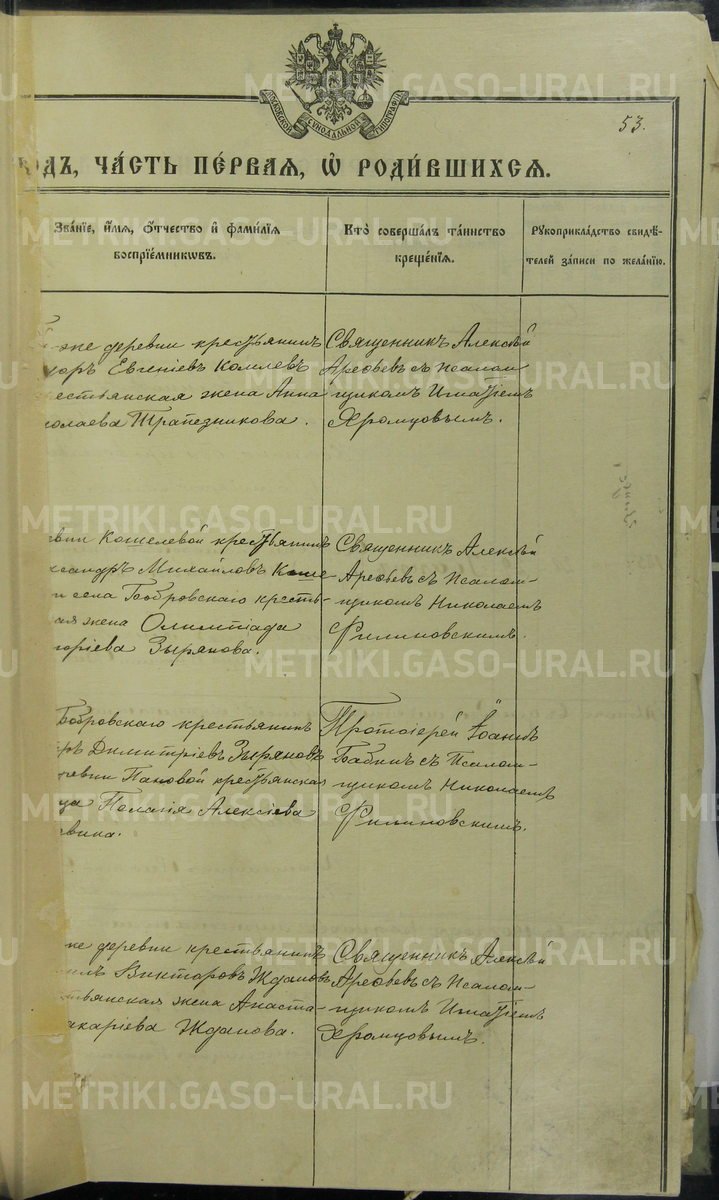 МОСКОВСКОЙ СѴНОДАЛЬНОЙ ТИПОГРАФІИ
53.
ОДЪ, ЧА́СТЬ ПЕ́РВАЯ, Ѽ РОДИ́ВШИХСЯ.
Зва́ніе, и҆́мя, ѻ҆́тчество и҆ фами́лія
воспріе́мниковъ.
Кто̀ соверша́лъ та́инство
креще́нія.
Рꙋкоприкла́дство свидѣ́-
телей за́писи по жела́нію.
же деревни крестьянинъ
Евгеніевъ
крестьянская жена Анна
колаева Трапезникова.
Священникъ Алексѣй
Арефьевъ съ Псалом
щикомъ Игнатіемъ
Хромцовымъ.
евни Кошелевой крестьянинъ
ксандръ Михайловъ Коше
и села Бобровскаго кресть-
ая жена Олимпіада
горіева Зырянова.
Священникъ Алексѣй
Арефьевъ съ Псалом-
щикомъ Николаемъ
Филиновскимъ.
Бобровскаго крестьянинъ
Димитріевъ Зыряновъ
ревни Пановой крестьянская
Пелагія Алексіева
Протоіерей Іоаннъ
Бабинъ съ Псалом-
щикомъ Николаемъ
Филиновскимъ.
же деревни крестьянинъ
илъ Викторовъ Ждановъ
стьянская жена Анаста-
акаріева Жданова.
Священникъ Алексѣй
Арефьевъ съ Псалом-
щикомъ Игнатіемъ
Хромцовымъ.
METRIKI.GASO-URAL.RU